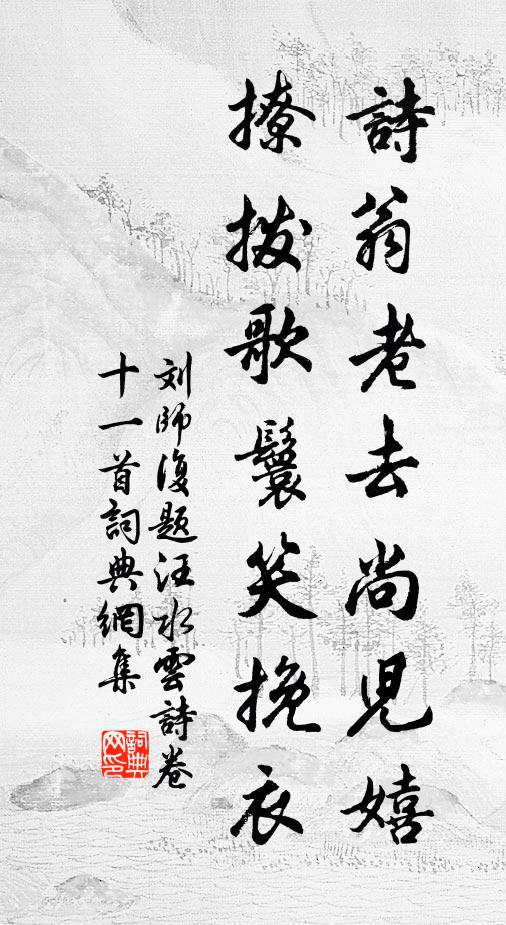 詩翁老去尚兒嬉
撩撥歌鬟笑挽衣
刘師復题汪水雲詩卷
十一首詞典網集
詞典
网印